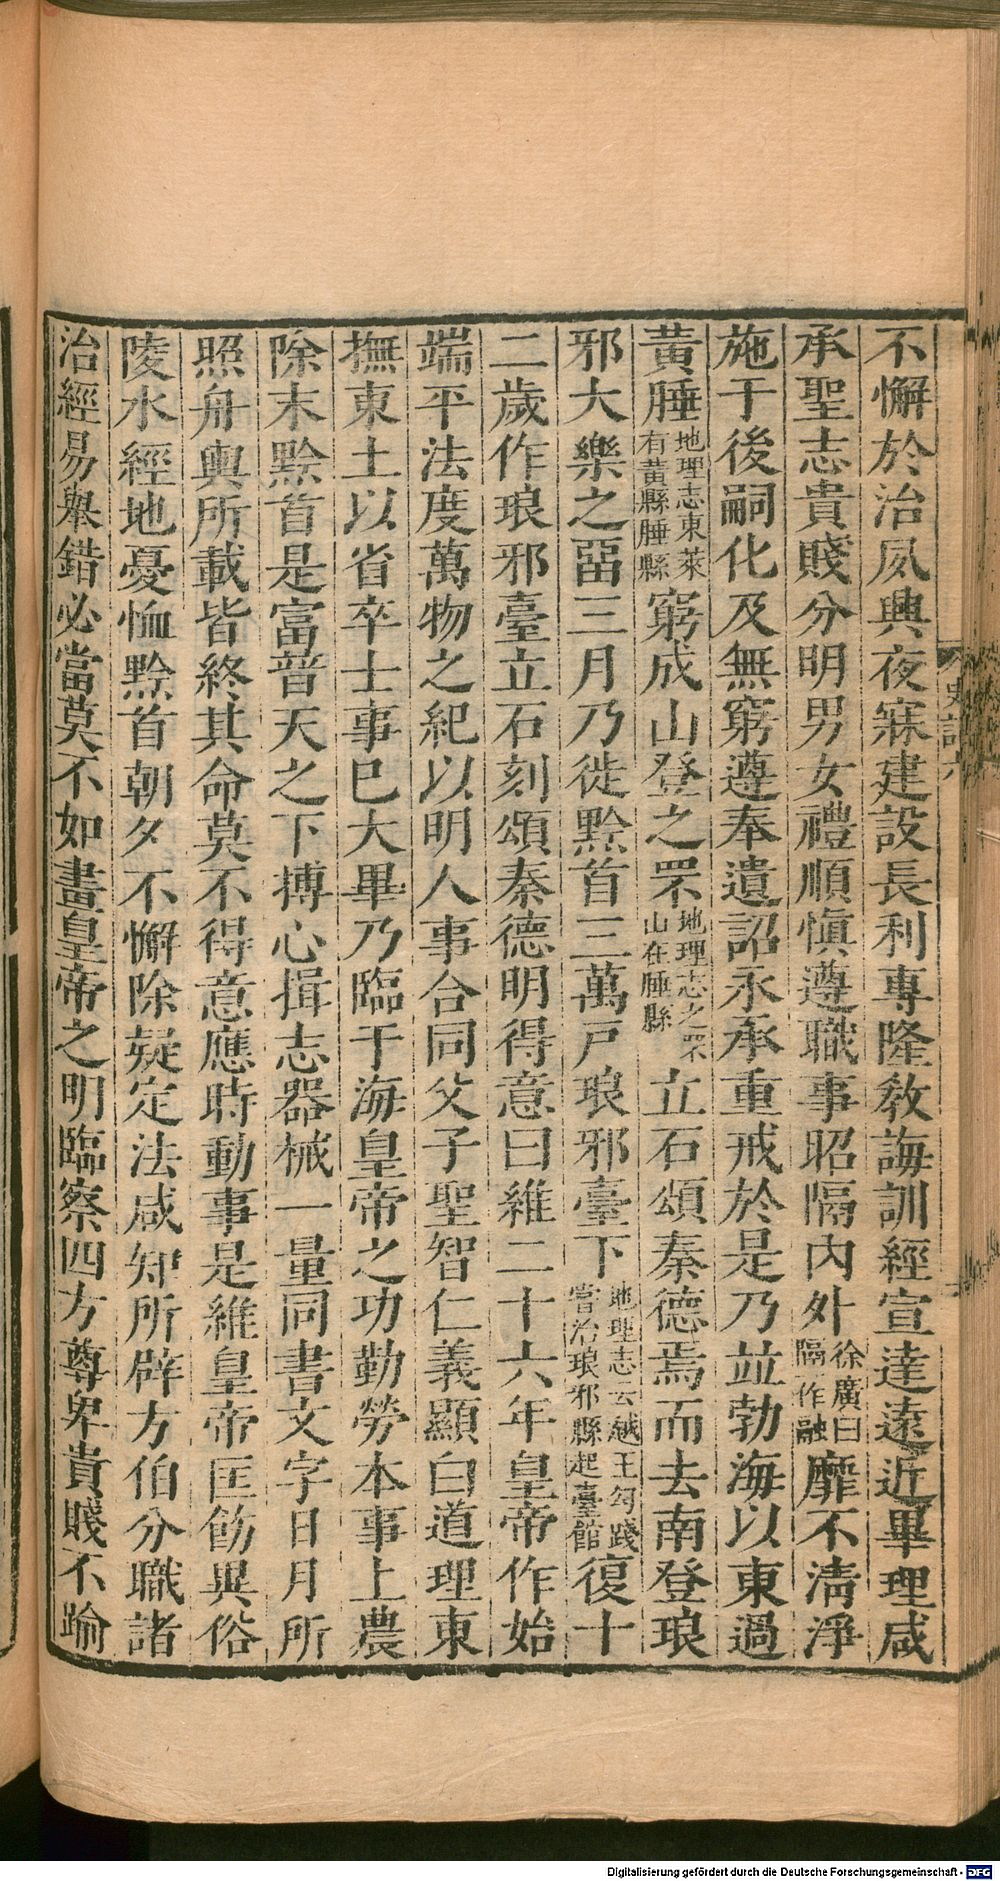 不懈於治夙興夜寐建設長利專隆敎誨訓經宣達遠近畢理咸
承聖志貴賤分明男女禮順愼遵職事昭隔內外徐廣曰隔一作融靡不淸淨
施于後嗣化及無窮遵奉遺詔永承重戒於是乃並勃海以東過
黃腄地理志東萊有黃縣腄縣窮成山登之罘地理志之罘山在腄縣立石頌秦德焉而去南登琅
邪大樂之畱三月乃徙黔首三萬戶琅邪臺下地理志云越王勾踐嘗治琅邪縣起臺館復十
二歲作琅邪臺立石刻頌秦德明得意曰維二十六年皇帝作始
端平法度萬物之紀以明人事合同父子聖智仁義顯白道理東
撫東土以省卒士事巳大畢乃臨于海皇帝之功勤勞本事上農
除末黔首是富普天之下摶心揖志器械一量同書文字日月所
照舟輿所載皆終其命莫不得意應時動事是維皇帝匡飭異俗
陵水經地憂恤黔首朝夕不懈除疑定法咸知所辟方伯分職諸
治經易舉錯必當莫不如畫皇帝之明臨察四方尊卑貴賤不踰
Digitalisierung gefördert durch die Deutsche Forschungsgemeinschaft - DFG